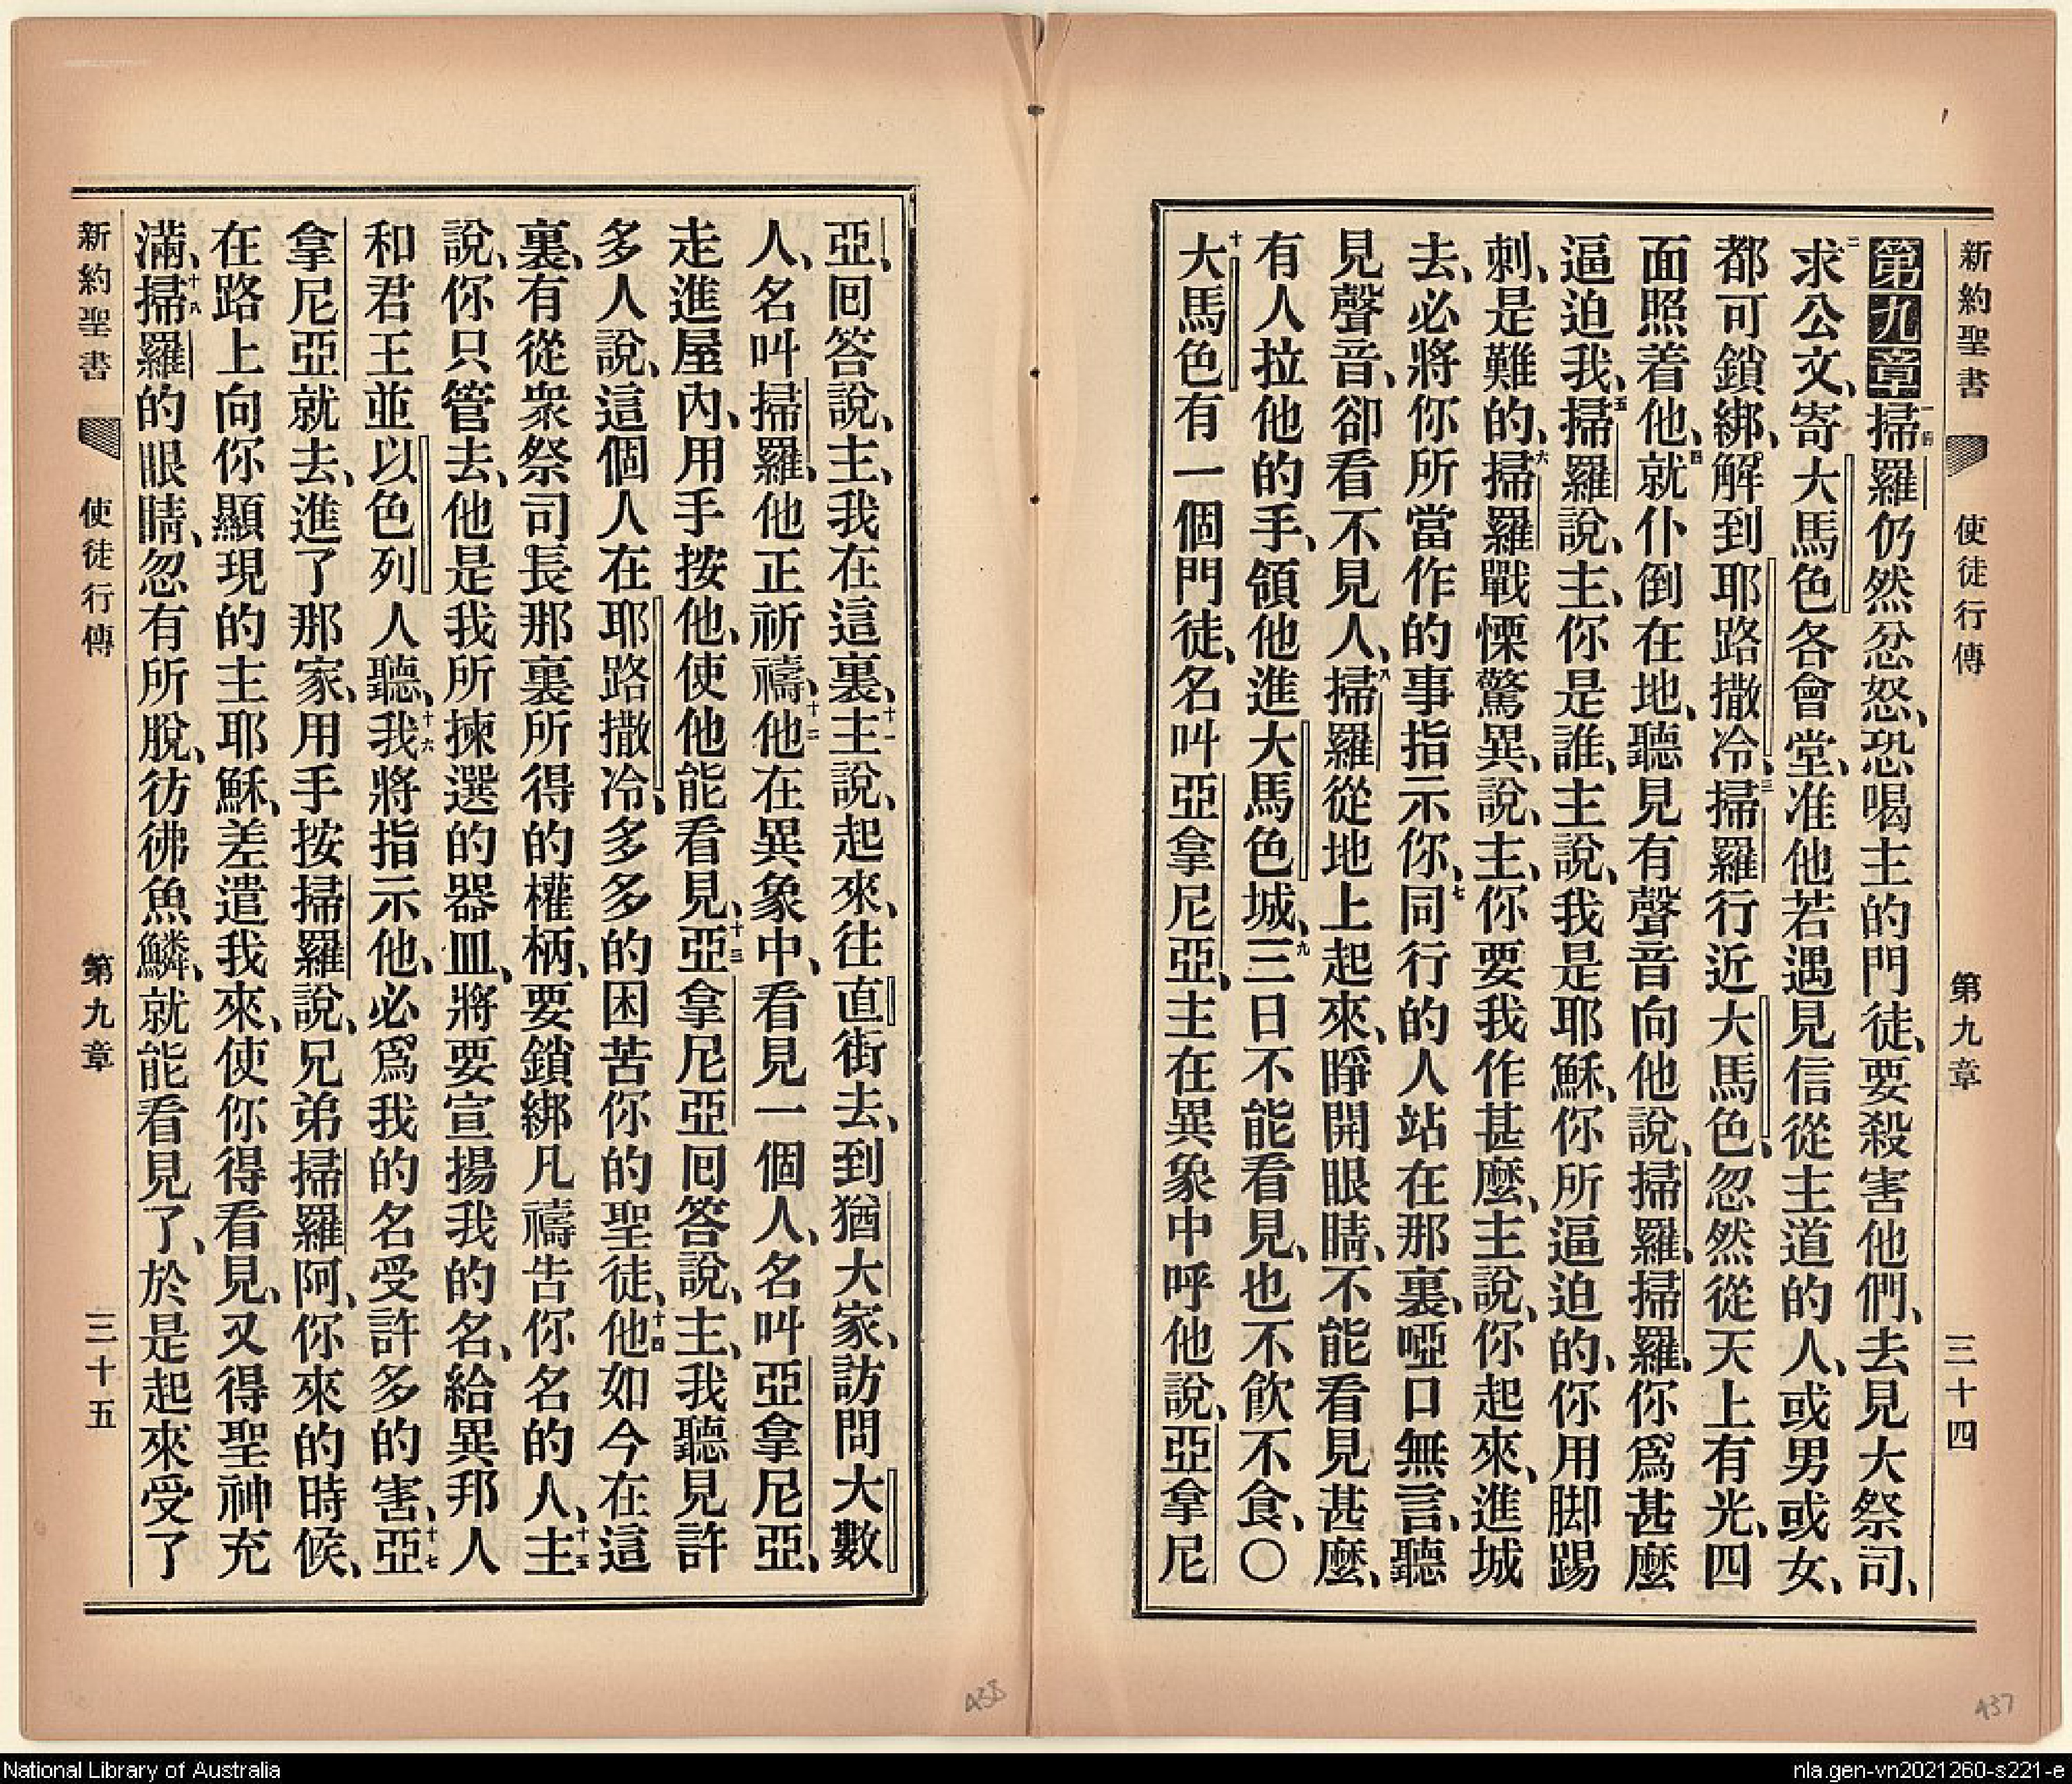 新約聖書 使徒行傳 第九章 三十四
第九章一掃羅仍然忿怒、恐喝主的門徒、要殺害他們、去見大祭司、
二求公文、寄大馬色各會堂、准他若遇見信從主道的人、或男或女、
都可鎖綁、解到耶路撒冷、三掃羅行近大馬色、忽然從天上有光、四
面照着他、四就仆倒在地、聽見有聲音向他說、掃羅、掃羅、你爲甚麼
逼迫我、五掃羅說、主、你是誰、主說、我是耶穌、你所逼迫的、你用脚踢
刺、是難的、六掃羅戰慄驚異、說、主、你要我作甚麼、主說、你起來、進城
去、必將你所當作的事指示你、七同行的人站在那裏、啞口無言、聽
見聲音、卻看不見人、八掃羅從地上起來、睜開眼睛、不能看見甚麼、
有人拉他的手、領他進大馬色城、九三日不能看見、也不飮不食、〇
十大馬色有一個門徒、名叫亞拿尼亞、主在異象中呼他說、亞拿尼
亞、囘答說、主、我在這裏、十一主說、起來、往直街去、到猶大家、訪問大數
人、名叫掃羅、他正祈禱、十二他在異象中、看見一個人、名叫亞拿尼亞、
走進屋內、用手按他、使他能看見、十三亞拿尼亞囘答說、主、我聽見許
多人說、這個人在耶路撒冷、多多的困苦你的聖徒、十四他如今在這
裏、有從衆祭司長那裏所得的權柄、要鎖綁凡禱告你名的人、十五主
說、你只管去、他是我所揀選的器皿、將要宣揚我的名、給異邦人
和君王並以色列人聽、十六我將指示他、必爲我的名受許多的害、十七亞
拿尼亞就去、進了那家、用手按掃羅說、兄弟掃羅阿、你來的時候、
在路上向你顯現的主耶穌、差遣我來、使你得看見、又得聖神充
滿、十八掃羅的眼睛、忽有所脫、彷彿魚鱗、就能看見了、於是起來受了
新約聖書 使徒行傳 第九章 三十五
438
437
National Library of Australia
nla.gen-vn2021260-s221-e